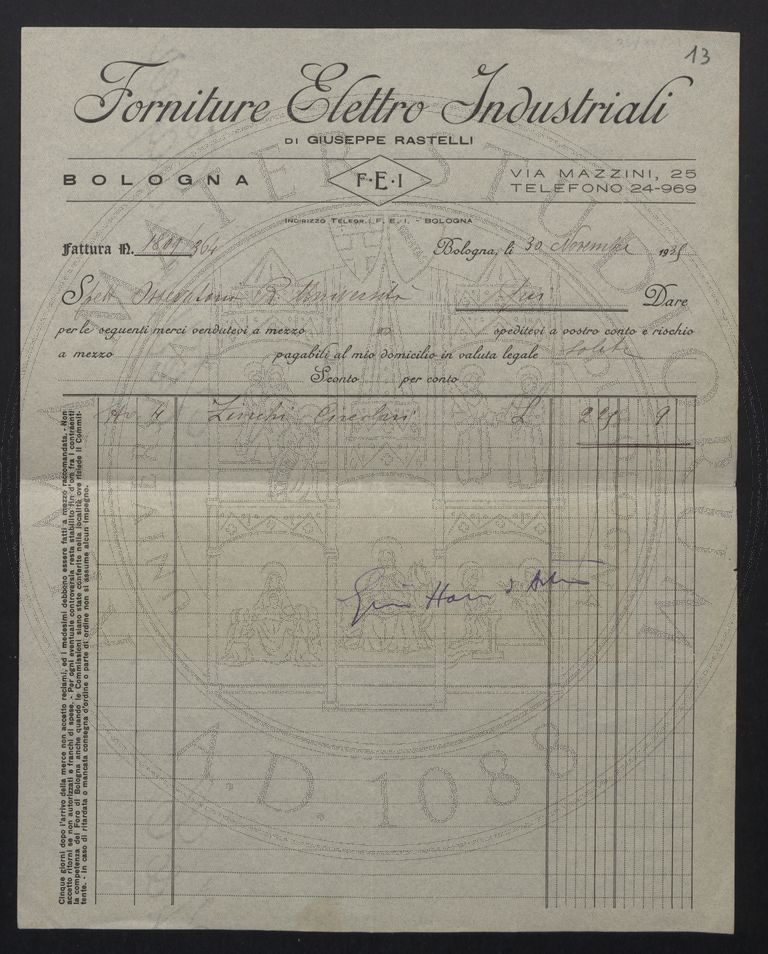 13
Forniture Elettro Industriali
DI GIUSEPPE RASTELLI
BOLOGNA
F·E·I
VIA MAZZINI, 25
TELEFONO 24-969
INDIRIZZO TELEGR.: F. E. I. - BOLOGNA
Fattura N. 1809 364
Bologna, li 30 Novembre 1935
Spett Osservatorio R. Università
Dare
per le seguenti merci vendutevi a mezzo
speditevi a vostro conto e rischio
a mezzo pagabili al mio domicilio in valuta legale solita
Sconto per conto
N. 4 Zinchi Circolari L 225 9
Cinque giorni dopo l'arrivo della merce non accetto reclami, ed i medesimi debbono essere fatti a mezzo raccomandata. - Non
accetto ritorni se non autorizzati e franchi di spese. - Per ogni eventuale controversia resta stabilito fin d'ora fra i contraenti
la competenza del Foro di Bologna anche quando le Commissioni siano state conferite nella località ove risiede il Commit-
tente. - In caso di ritardata o mancata consegna d'ordine o parte di ordine non si assume alcun impegno.
ALMA MATER STUDIORUM
A.D. 1088